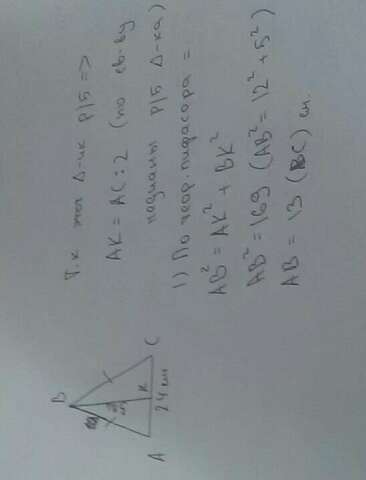 Т.к этот Δ-ик р/б =>
AK = AC : 2 (по св-ву
медианы р/б Δ-ка)
1) По теор. пифагора =
AB² = AK² + BK²
AB² = 169 (AB² = 12² + 5²)
AB = 13 (BC) см.
B
A
K
C
24 см